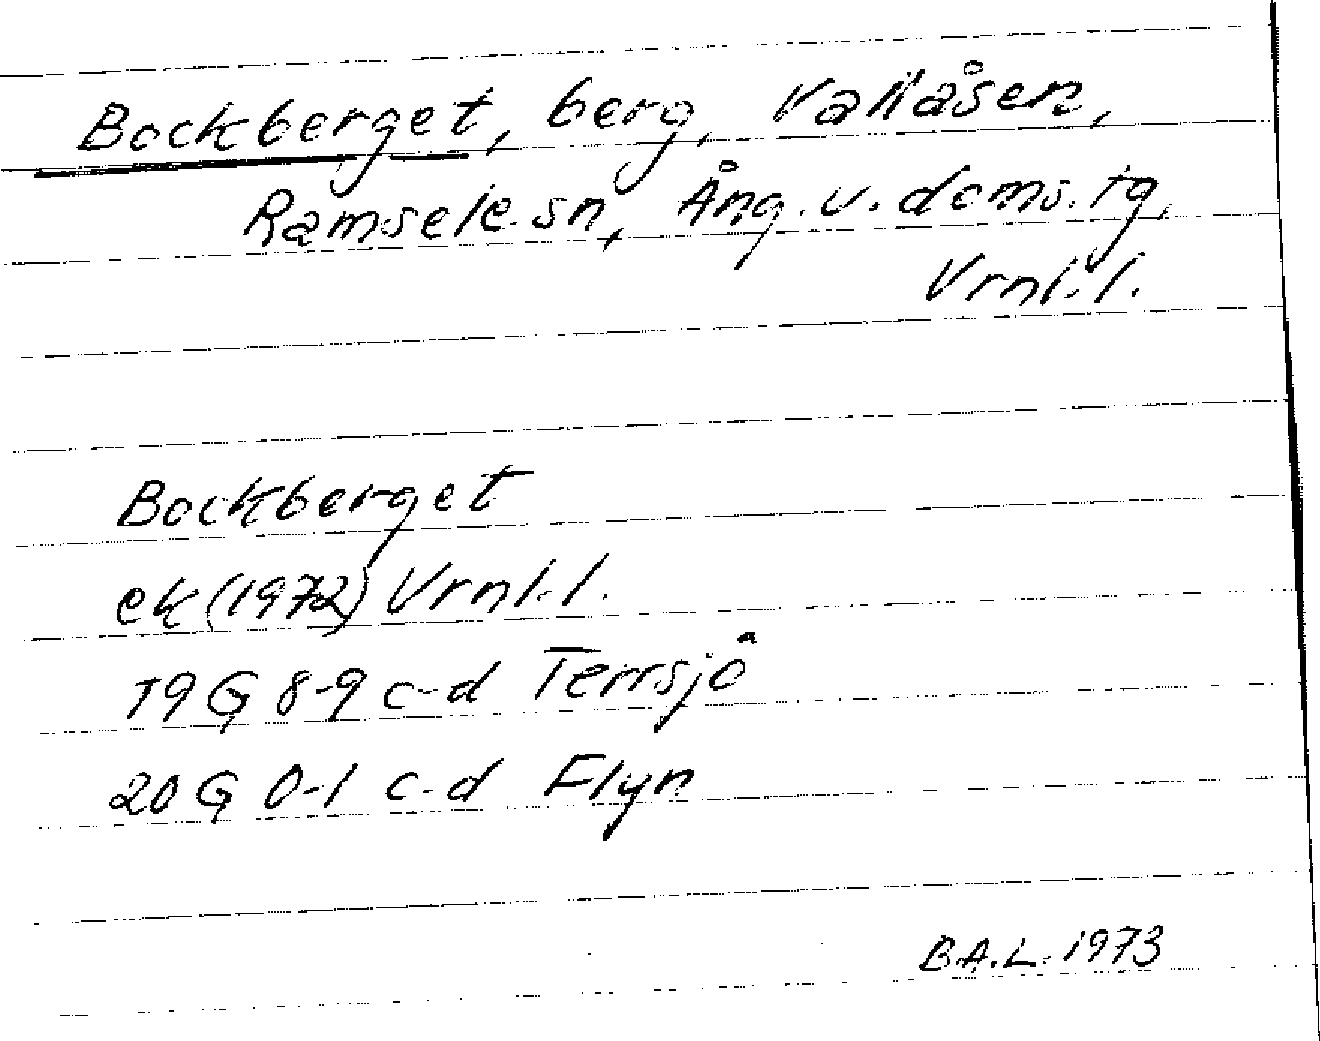 Bockberget, berg, Vallåsen,
Ramsele sn, Ång. v. doms. tg,
Vrnl. l.
Bockberget
ek (1972) Vrnl. l.
19 G 8-9 c-d Terrsjö
20 G 0-1 c-d Flyn
B.A.L. 1973